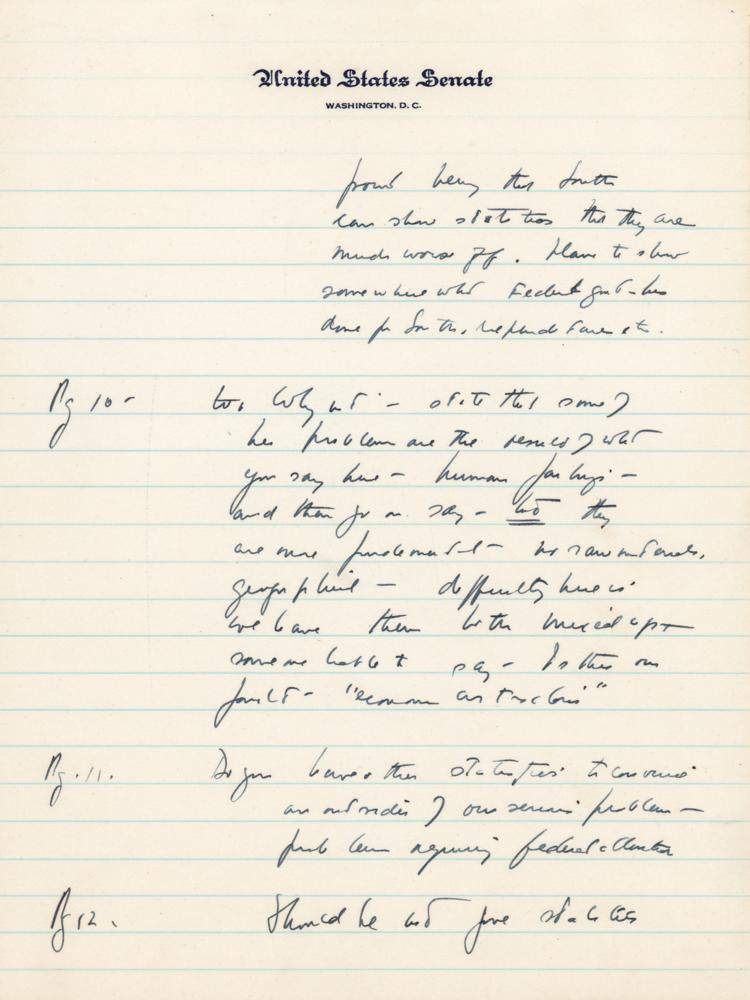 United States Senate
WASHINGTON, D. C.
point being that South
can show statistics that they are
much worse off. Have to show
somewhere what Federal govt - has
done for South,
Pg 10 - Why not - state that some of
her problem are the result of what
you say here - human failings -
and then go on say - but they
are more fundamental - no raw materials,
geographical - difficulty here is
we have them both mixed up -
someone liable to say - Is this our
fault - "economic
Pg. 11. Do you have other statistics to convince
an outsider of our serious problem -
problem requiring federal attention
Pg 12. Should he not give statistics